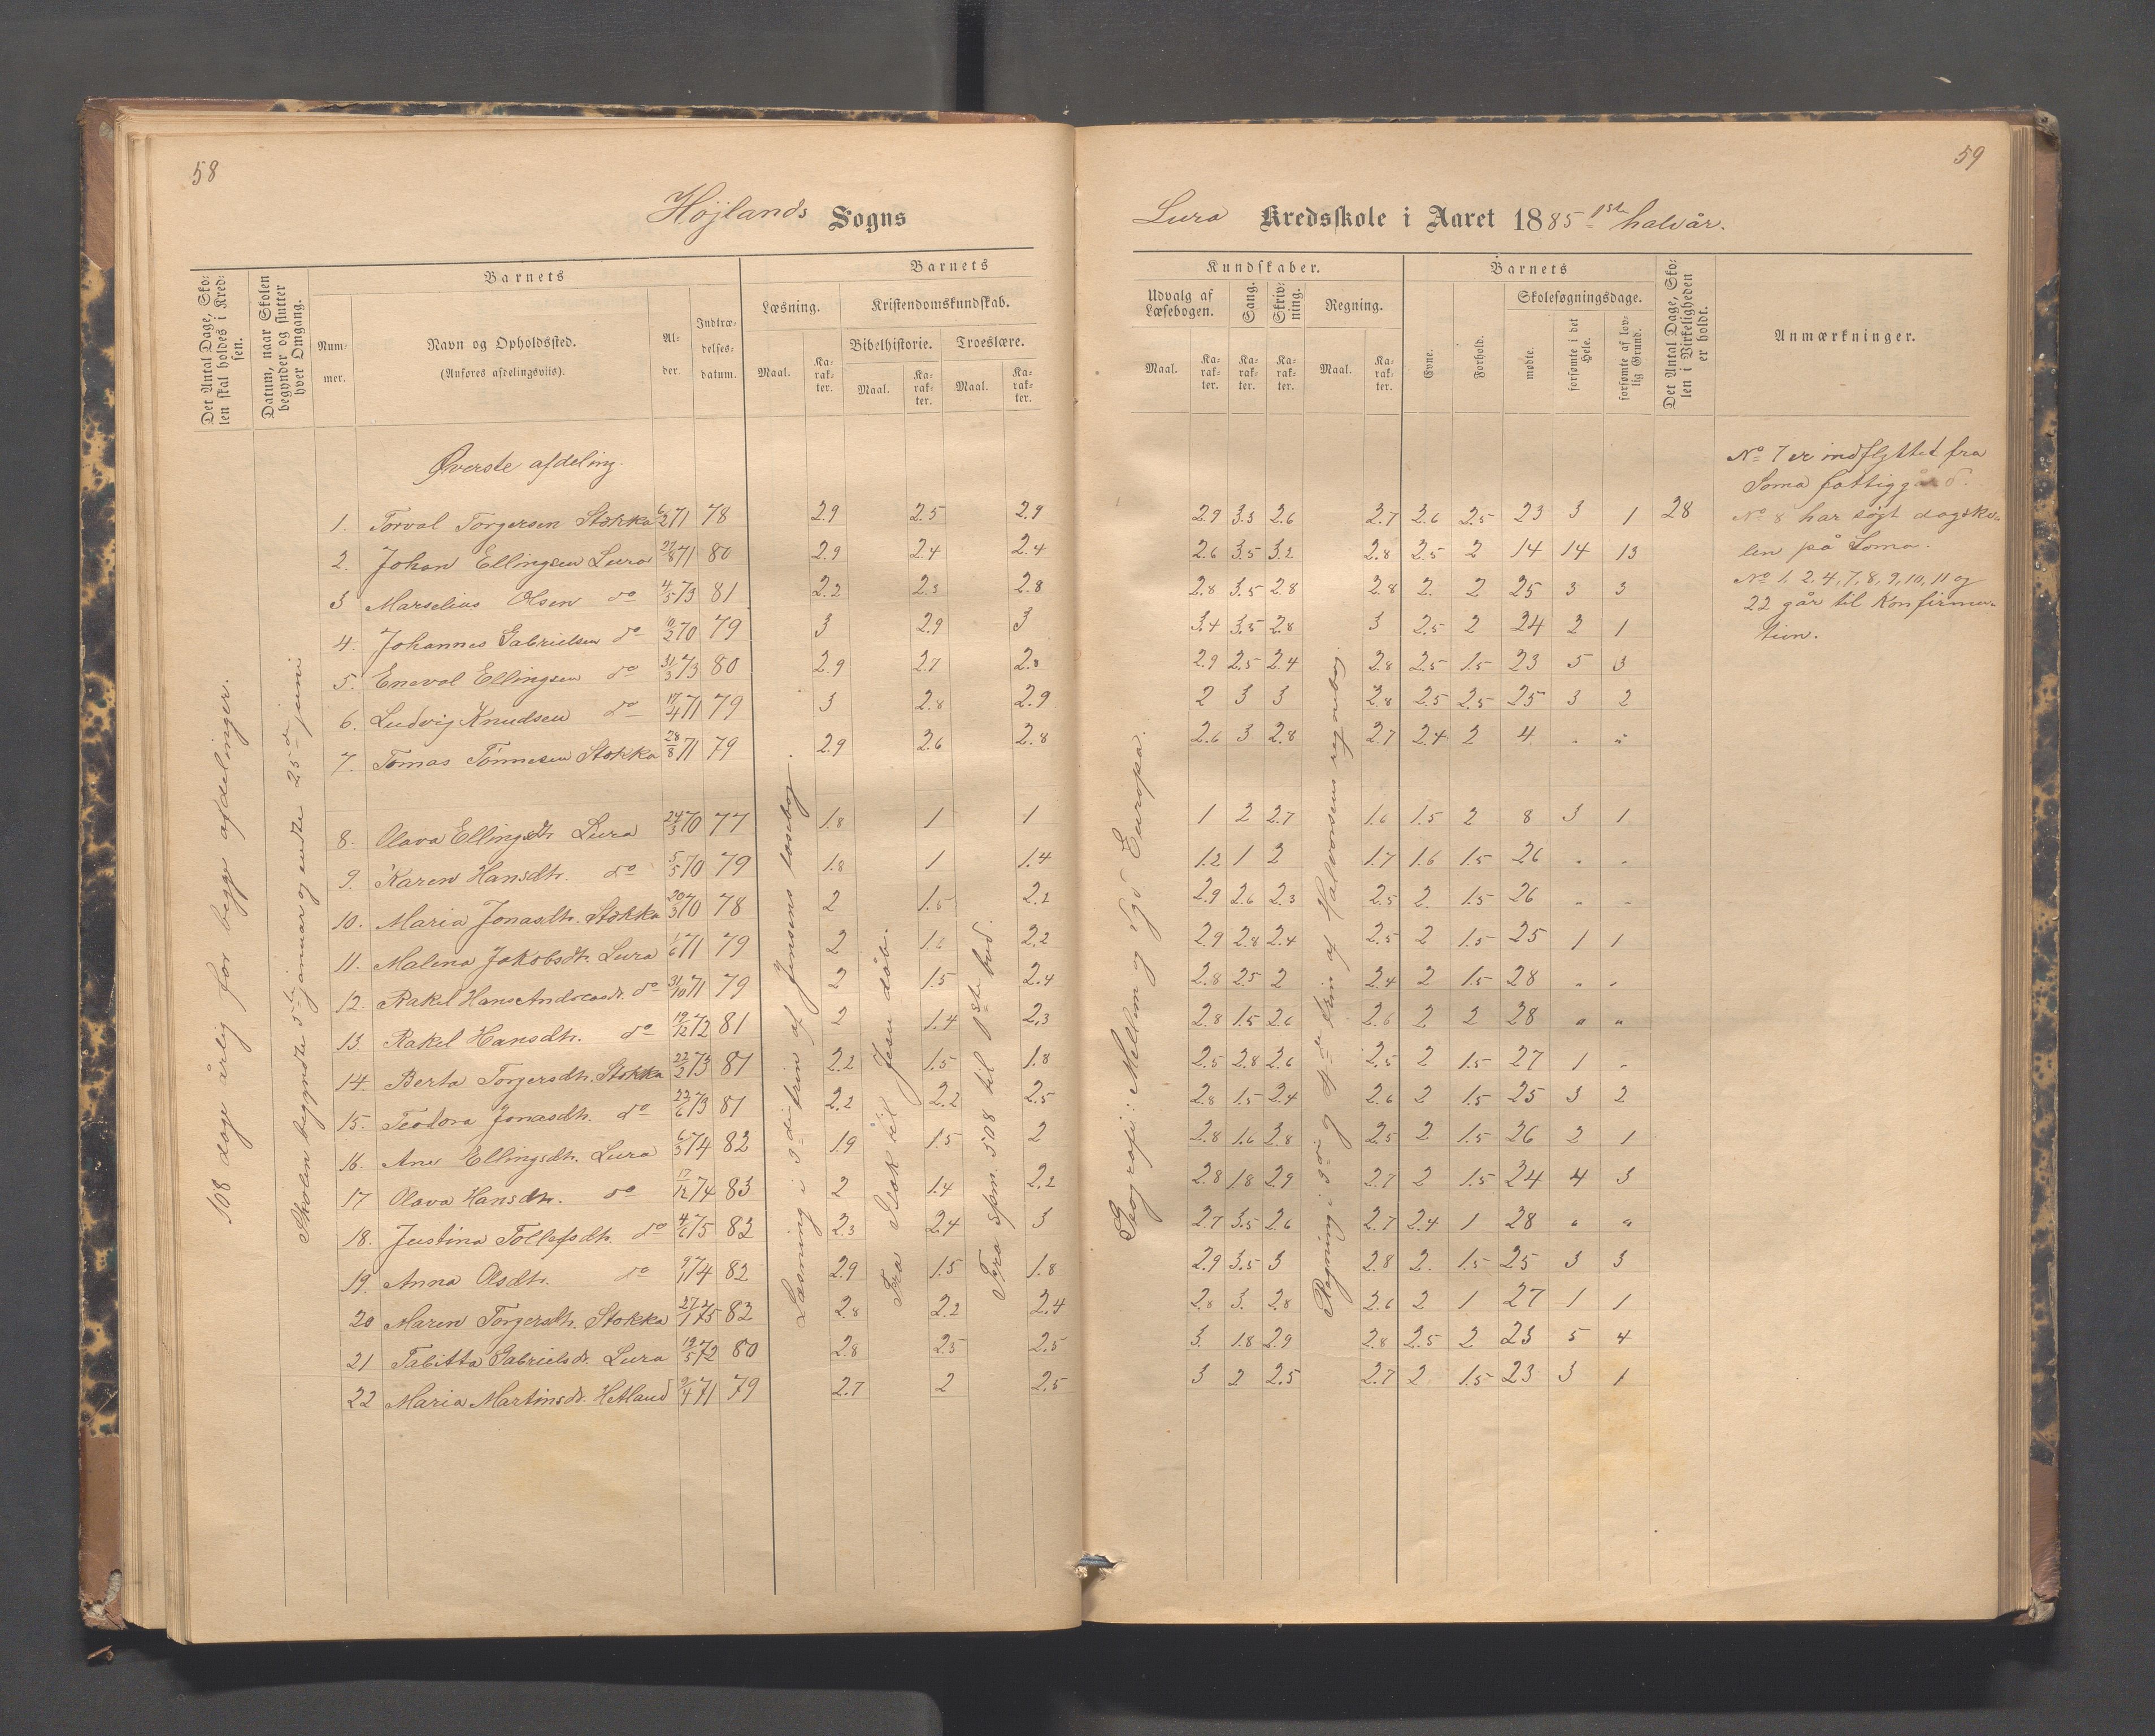 58
Højlands Sogns
Det Antal Dage, Sko-
len skal holdes i Kred-
sen.
Datum, naar Skolen
begynder og slutter
hver Omgang.
Barnets
Num-
mer.
Navn og Opholdssted.
(Anføres afdelingsviis).
Al-
der.
Indtræ-
delses-
datum.
Barnets
Læsning.
Kristendomskundskab.
Bibelhistorie.
Troeslære.
Maal.
Ka-
rak-
ter.
Maal.
Ka-
rak-
ter.
Maal.
Ka-
rak-
ter.
108 dage årlig for begge afdelinger.
Skolen begyndte 5te januar og endte 25de juni
Læsning i 3die trin af Jensens læsebog.
Fra Isak til Jesu dåb.
Fra spm. 508 til 1ste bud.
Øverste afdeling.
1. Torval Torgersen Stokka 6/2 71 78 2.9 2.5 2.9
2. Johan Ellingsen Lura 27/8 71 80 2.9 2.4 2.4
3 Marselius Olsen do 4/5 73 81 2.2 2.3 2.8
4. Johannes Gabrielsen do 70 79 3 2.9 3
5. Eneval Ellingsen do 31/3 73 80 2.9 2.7 2.8
6. Ludvig Knudsen do 17/4 71 79 3 2.8 2.9
7. Tomas Tönnesen Stokka 28/8 71 79 2.9 2.6 2.8
8. Olava Ellingsdtr. Lura 24/3 70 77 1.8 1 1
9. Karen Hansdtr. do 5/5 70 79 1.8 1 1.4
10. Maria Jonasdtr. Stokka 20/3 70 78 2 1.5 2.2
11. Malena Jakobsdtr. Lura 1/6 71 79 2 1.6 2.2
12. Rakel Hans Andreasdr. do 31/10 71 79 2 1.5 2.4
13. Rakel Hansdtr. do 19/12 72 81 2 1.4 2.3
14. Berta Torgersdtr. Stokka 22/2 73 81 2.2 1.5 1.8
15. Teodora Jonasdtr. do 22/6 73 81 2.2 2.2 2.5
16. Ane Ellingsdtr. Lura 6/3 74 82 1.9 1.5 2
17 Olava Hansdtr. do 17/12 74 83 2 1.4 2.2
18. Justina Tollefsdtr. do 4/6 75 83 2.3 2.4 3
19. Anna Olsdtr. do 9/1 74 82 2.9 1.5 1.8
20 Maren Torgersdtr. Stokka 27/1 75 82 2.8 2.2 2.4
21 Tabitta Gabrielsdr. Lura 19/5 72 80 2.8 2.3 2.5
22 Maria Martinsdr. Hetland 9/4 71 79 2.7 2 2.5
59
Lura Kredsskole i Aaret 1885 1ste halvår.
Kundskaber.
Udvalg af
Læsebogen.
Maal.
Ka-
rak-
ter.
Sang.
Ka-
rak-
ter.
Skriv-
ning.
Ka-
rak-
ter.
Regning.
Maal.
Ka-
rak-
ter.
Barnets
Evne.
Forhold.
Skolesøgningsdage.
mødte.
forsømte i det
Hele.
forsømte af lov-
lig Grund.
Det Antal Dage, Sko-
len i Virkeligheden
er holdt.
Anmærkninger.
Geografi: Mellem og syd Europa.
Regning i 3die og 4de trin af Halvorsens regnebog.
2.9 3.3 2.6 2.7 2.6 2.5 23 3 1 28
2.6 3.5 3.2 2.8 2.5 2 14 14 13
2.8 3.5 2.8 2.8 2. 2 25 3 3
3.4 3.5 2.8 3 2.5 2 24 2 1
2.9 2.5 2.4 2.8 2.5 1.5 23 5 3
2 3 3 2.8 2.5 2.5 25 3 2
2.6 3 2.8 2.7 2.4 2 4 " "
1 2 2.7 1.6 1.5 2 8 3 1
1.2 1 2 1.7 1.6 1.5 26 " "
2.9 2.6 2.3 2.5 2. 1.5 26 " "
2.9 2.8 2.4 2.5 2 1.5 25 1 1
2.8 2.5 2 2.4 2 1.5 28 " "
2.8 1.5 2.6 2.6 2 2 28 " "
2.5 2.8 2.6 2.5 2 1.5 27 1 "
2.8 1.5 2.4 2.6 2 1.5 25 3 2
2.8 1.6 2.8 2.5 2 1.5 26 2 1
2.8 1.8 2.9 2.7 2 1.5 24 4 3
2.7 3.5 2.6 2.7 2.4 1 28 " "
2.9 3.5 3 2.8 2. 1.5 25 3 3
2.8 3. 2.8 2.6 2 1 27 1 1
3. 1.8 2.9 2.8 2.5 2 23 5 4
3 2 2.5 2.7 2 1.5 23 3 1
No 7 er indflyttet fra
Soma fattiggård.
No 8 har søgt dagsko-
len på Soma.
No 1, 2, 4, 7, 8, 9, 10, 11 og
22 går til Konfirma-
tion.